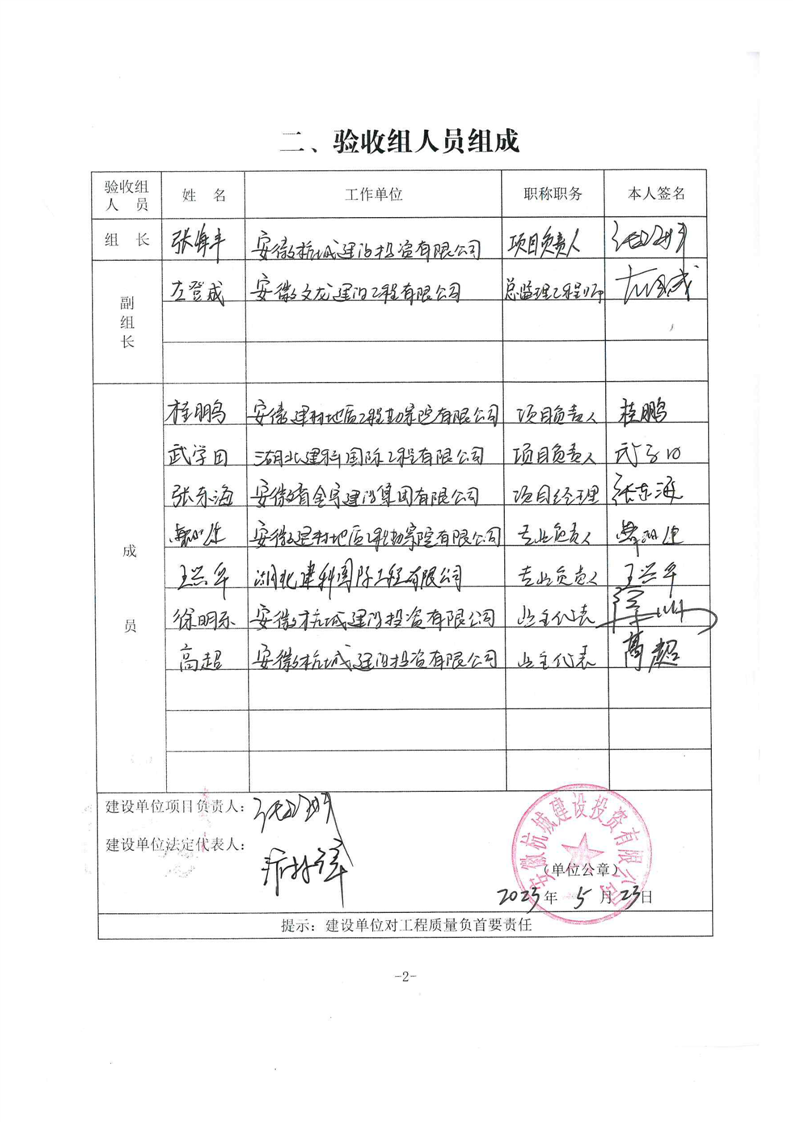 二、验收组人员组成
验收组人员 姓 名 工作单位 职称职务 本人签名
组 长 张 安徽杭城建设投资有限公司 项目负责人
副组长 左登成 安徽文龙建设工程有限公司 总监理工程师
成员
桂鹏 安徽建材地质工程勘察院有限公司 项目负责人 桂鹏
武学田 湖北建科国际工程有限公司 项目负责人
张东海 安徽省金宇建设集团有限公司 项目经理 张东海
安徽建材地质工程勘察院有限公司 专业负责人
王兴华 湖北建科国际工程有限公司 专业负责人 王兴华
徐明乐 安徽杭城建设投资有限公司 业主代表
高超 安徽杭城建设投资有限公司 业主代表 高超
建设单位项目负责人：
建设单位法定代表人：
安徽杭城建设投资有限公司
（单位公章）
2023年 5月23日
提示：建设单位对工程质量负首要责任
-2-